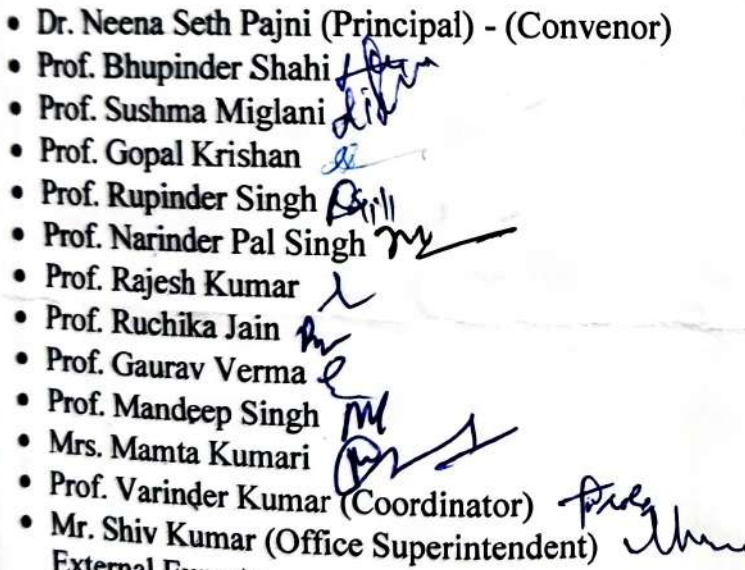 • Dr. Neena Seth Pajni (Principal) - (Convenor)
• Prof. Bhupinder Shahi
• Prof. Sushma Miglani
• Prof. Gopal Krishan
• Prof. Rupinder Singh
• Prof. Narinder Pal Singh
• Prof. Rajesh Kumar
• Prof. Ruchika Jain
• Prof. Gaurav Verma
• Prof. Mandeep Singh
• Mrs. Mamta Kumari
• Prof. Varinder Kumar (Coordinator)
• Mr. Shiv Kumar (Office Superintendent)
External